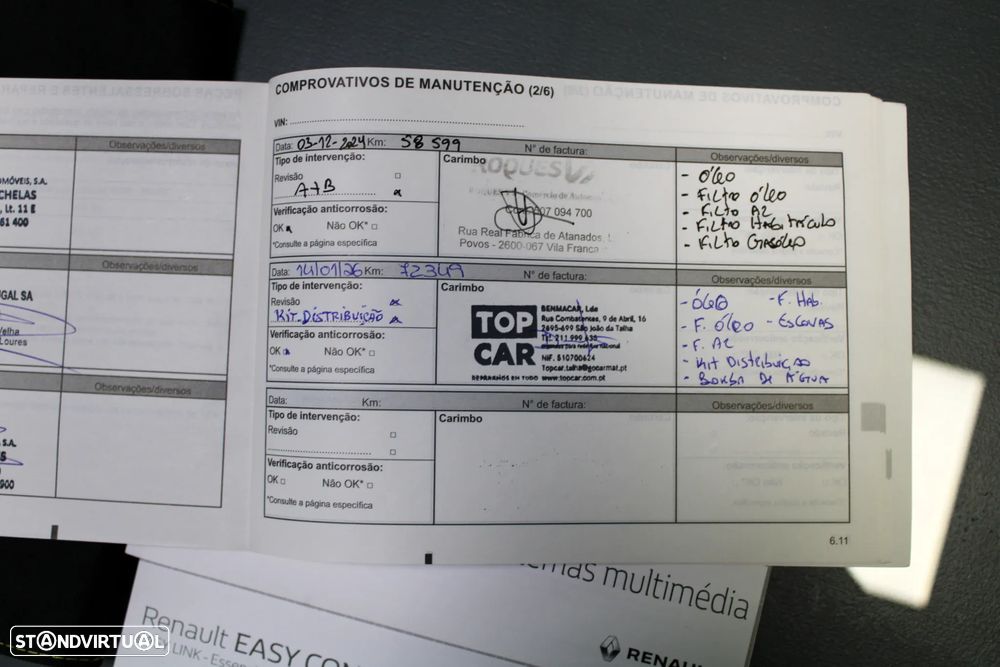 COMPROVATIVOS DE MANUTENÇÃO (2/6)
VIN:
Data: 03-12-2024 Km: 58 599
N° de factura:
Observações/diversos
Tipo de intervenção:
Revisão
A+B
Verificação anticorrosão:
OK Não OK*
*Consulte a página específica
Carimbo
ROQUES
507 094 700
Rua Real Fábrica de Atanados,
Povos - 2600-067 Vila Franca
- ÓLEO
- FILTRO ÓLEO
- FILTRO AR
- FILTRO HABITÁCULO
- FILTRO GASÓLEO
Data: 14/01/26 Km: 72349
N° de factura:
Observações/diversos
Tipo de intervenção:
Revisão
KIT. DISTRIBUIÇÃO
Verificação anticorrosão:
OK Não OK*
*Consulte a página específica
Carimbo
TOP
CAR
BENMACAR, Lda
Rua Combatentes, 9 de Abril, 16
2695-699 São João da Talha
Tel: 211 999 635
NIF. 510700624
Topcar.talha@gocarmat.pt
www.topcar.com.pt
- ÓLEO - F. HAB.
- F. ÓLEO - ESCOVAS
- F. AR
- KIT DISTRIBUIÇÃO
- BOMBA DE ÁGUA
Data: Km:
N° de factura:
Observações/diversos
Tipo de intervenção:
Revisão
Verificação anticorrosão:
OK Não OK*
*Consulte a página específica
Carimbo
6.11
Observações/diversos
OMÓVEIS, S.A.
CHELAS
, Lt. 11 E
61 400
Observações/diversos
UGAL SA
Velha
Loures
Observações/diversos
S.A.
900
mas multimédia
Renault EASY CON
LINK - Essen
RENAU
STANDVIRTUAL